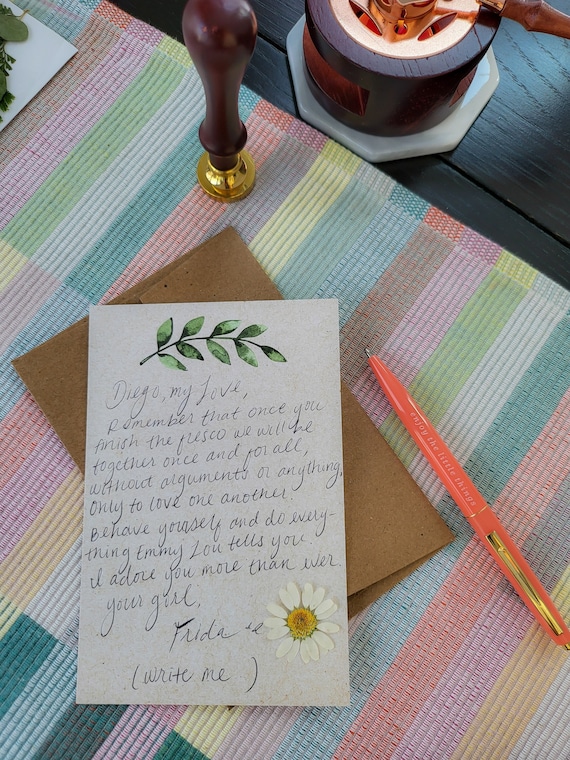 Diego, my Love,
Remember that once you
finish the fresco we will be
together once and for all,
without arguments or anything,
only to love one another.
Behave yourself and do every-
thing Emmy Lou tells you.
I adore you more than ever.
your girl,
Frida
(write me )
enjoy the little things